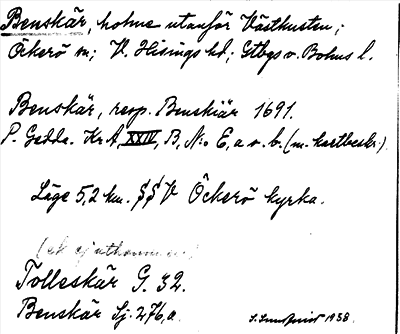 Benskär, holme utanför Västkusten;
Öckerö sn; V. Hisings hd; Gtbgs o. Bohus l.
Benskär, resp. Benskiär 1691.
P. Gedda. Kr.A, XXIV, B, N:o E, a o. b. (m. kartbeskr.).
Läge 5,2 km. SSV Öckerö kyrka.
(ek. ej uthommen)
Tolleskär G. 32.
Benskär Sj. 276, a.
S. Lundquist 1938.